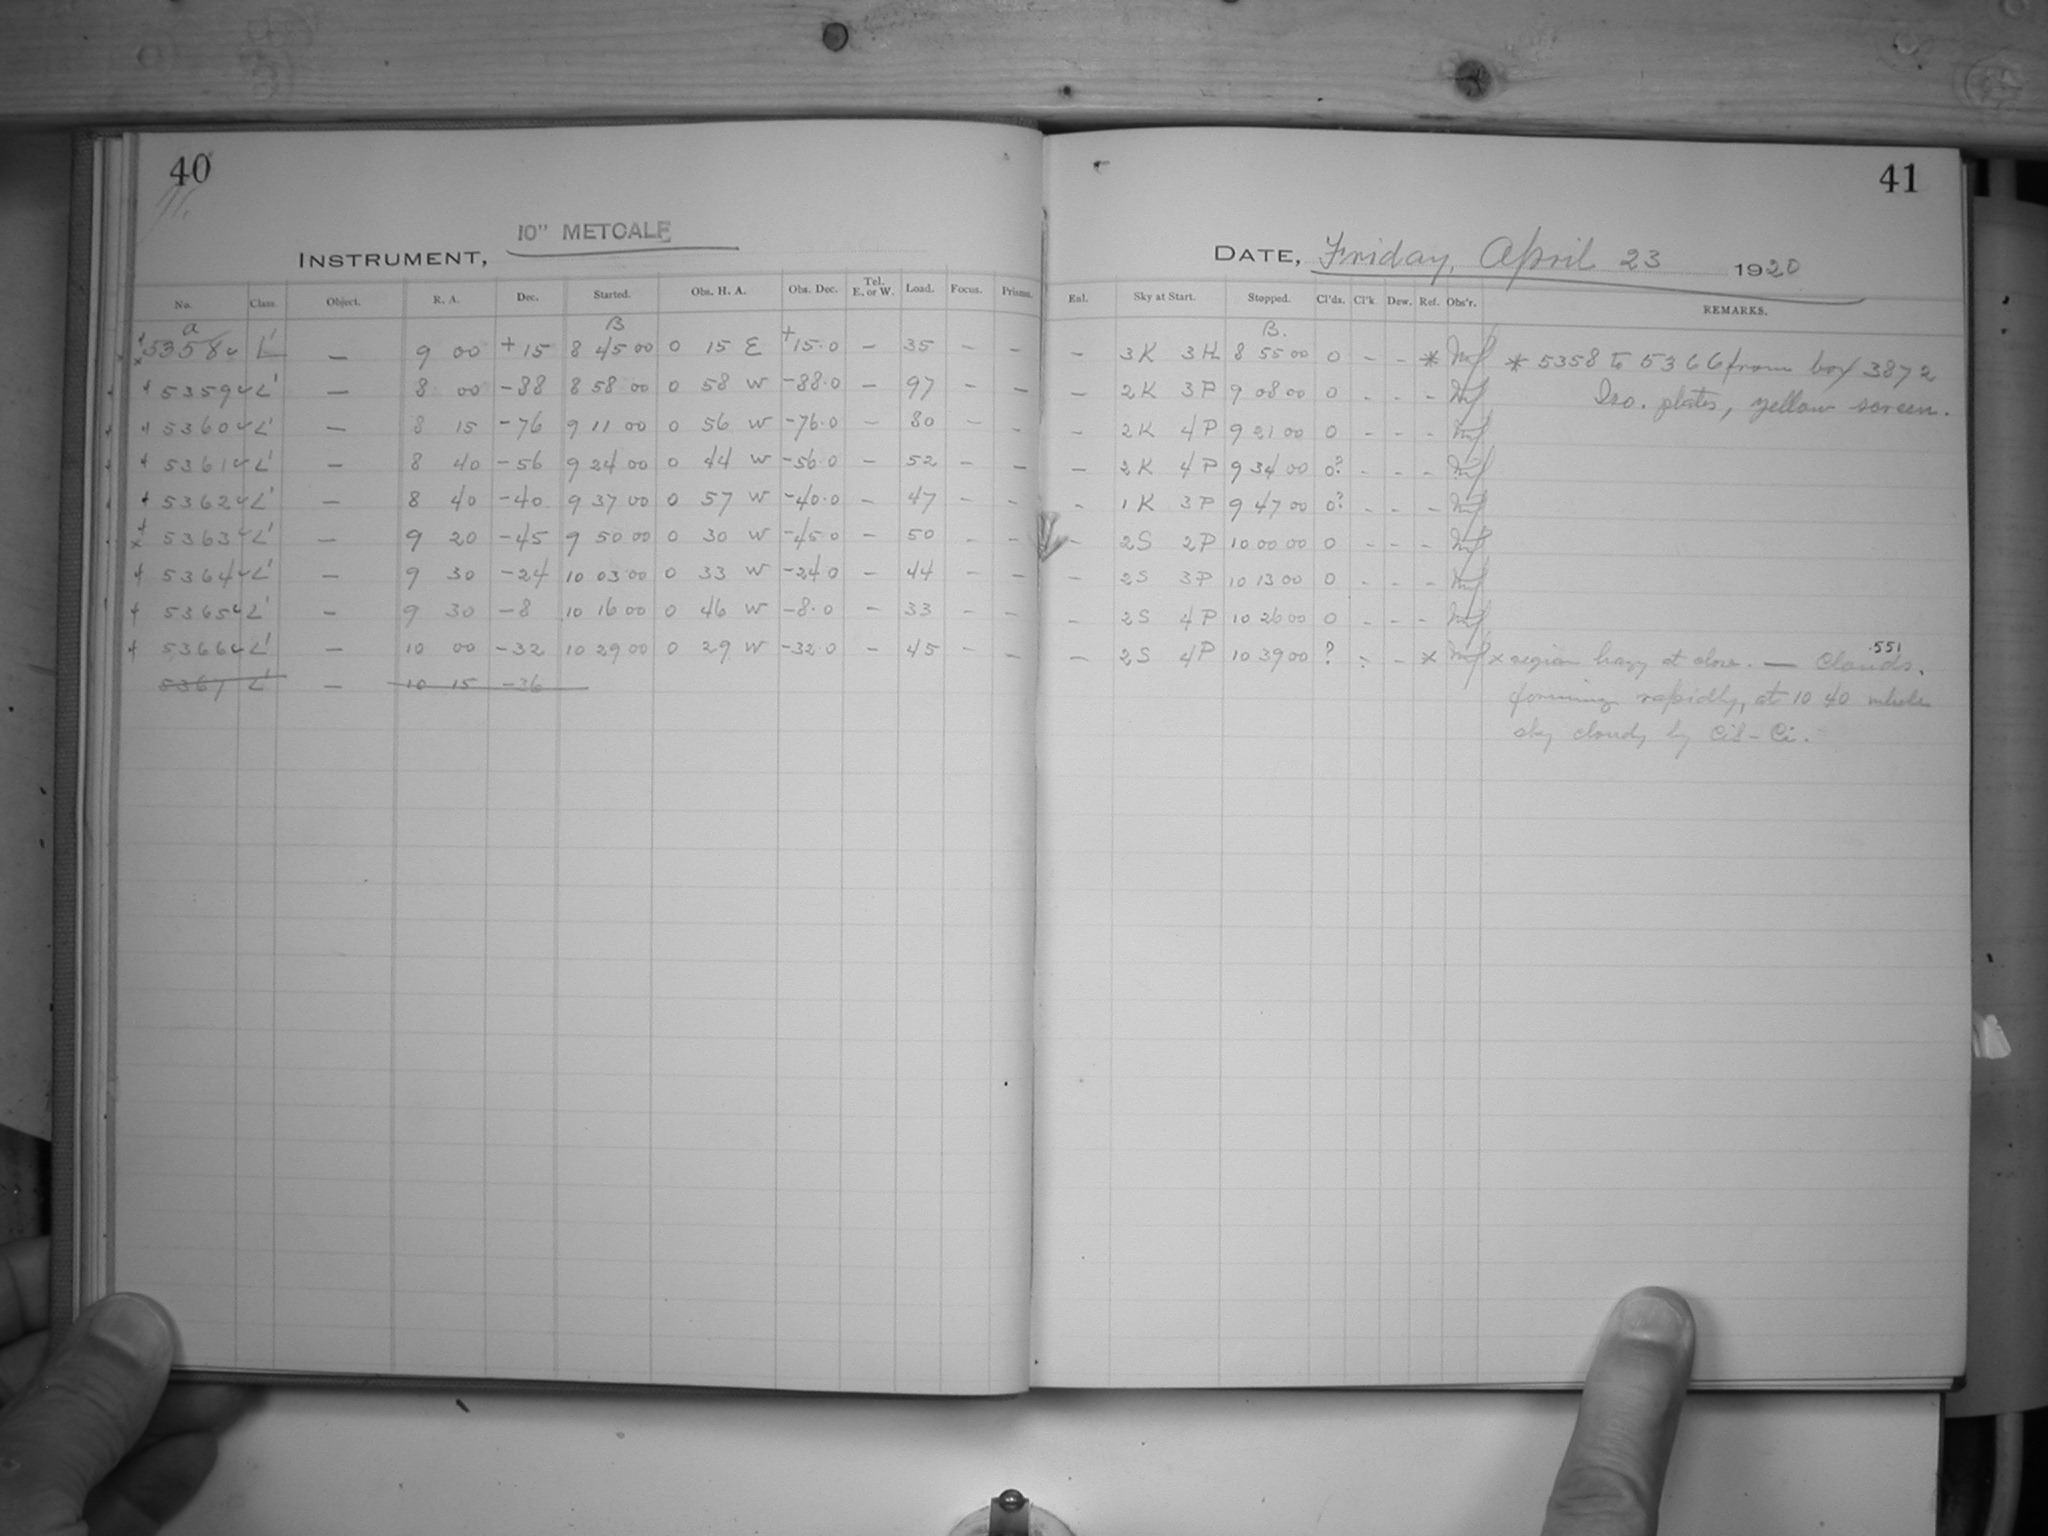 40
41
10" METCALF
INSTRUMENT,
DATE, Friday, April 23 1920
No. Class. Object. R. A. Dec. Started. Obs. H. A. Obs. Dec. Tel. E. or W. Load. Focus. Prisms. Eal. Sky at Start. Stopped. Cl'ds. Cl'k. Dew. Ref. Obs'r. REMARKS.
a B B.
5358 L' — 9 00 +15 8 45 00 0 15 E +15.0 — 35 — — — 3K 3H 8 55 00 0 - - * * 5358 to 5366 from box 3872
5359 L' — 8 00 -88 8 58 00 0 58 W -88.0 — 97 — — — 2K 3P 9 08 00 0 - - - Iso. plates, yellow screen.
5360 L' — 8 15 -76 9 11 00 0 56 W -76.0 — 80 — — — 2K 4P 9 21 00 0 - - -
5361 L' — 8 40 -56 9 24 00 0 44 W -56.0 — 52 — — — 2K 4P 9 34 00 0? - - -
5362 L' — 8 40 -40 9 37 00 0 57 W -40.0 — 47 — — - 1K 3P 9 47 00 0? - - -
5363 L' — 9 20 -45 9 50 00 0 30 W -45.0 — 50 — — - 2S 2P 10 00 00 0 - - -
5364 L' — 9 30 -24 10 03 00 0 33 W -24.0 — 44 — — - 2S 3P 10 13 00 0 - - -
5365 L' — 9 30 -8 10 16 00 0 46 W -8.0 — 33 — — - 2S 4P 10 26 00 0 - - -
5366 L' — 10 00 -32 10 29 00 0 29 W -32.0 — 45 — — — 2S 4P 10 39 00 ? - - x x region hazy at close. — Clouds.
551
5367 L' — 10 15 -36
forming rapidly, at 10 40 whole
sky cloudy by CiS-Ci.